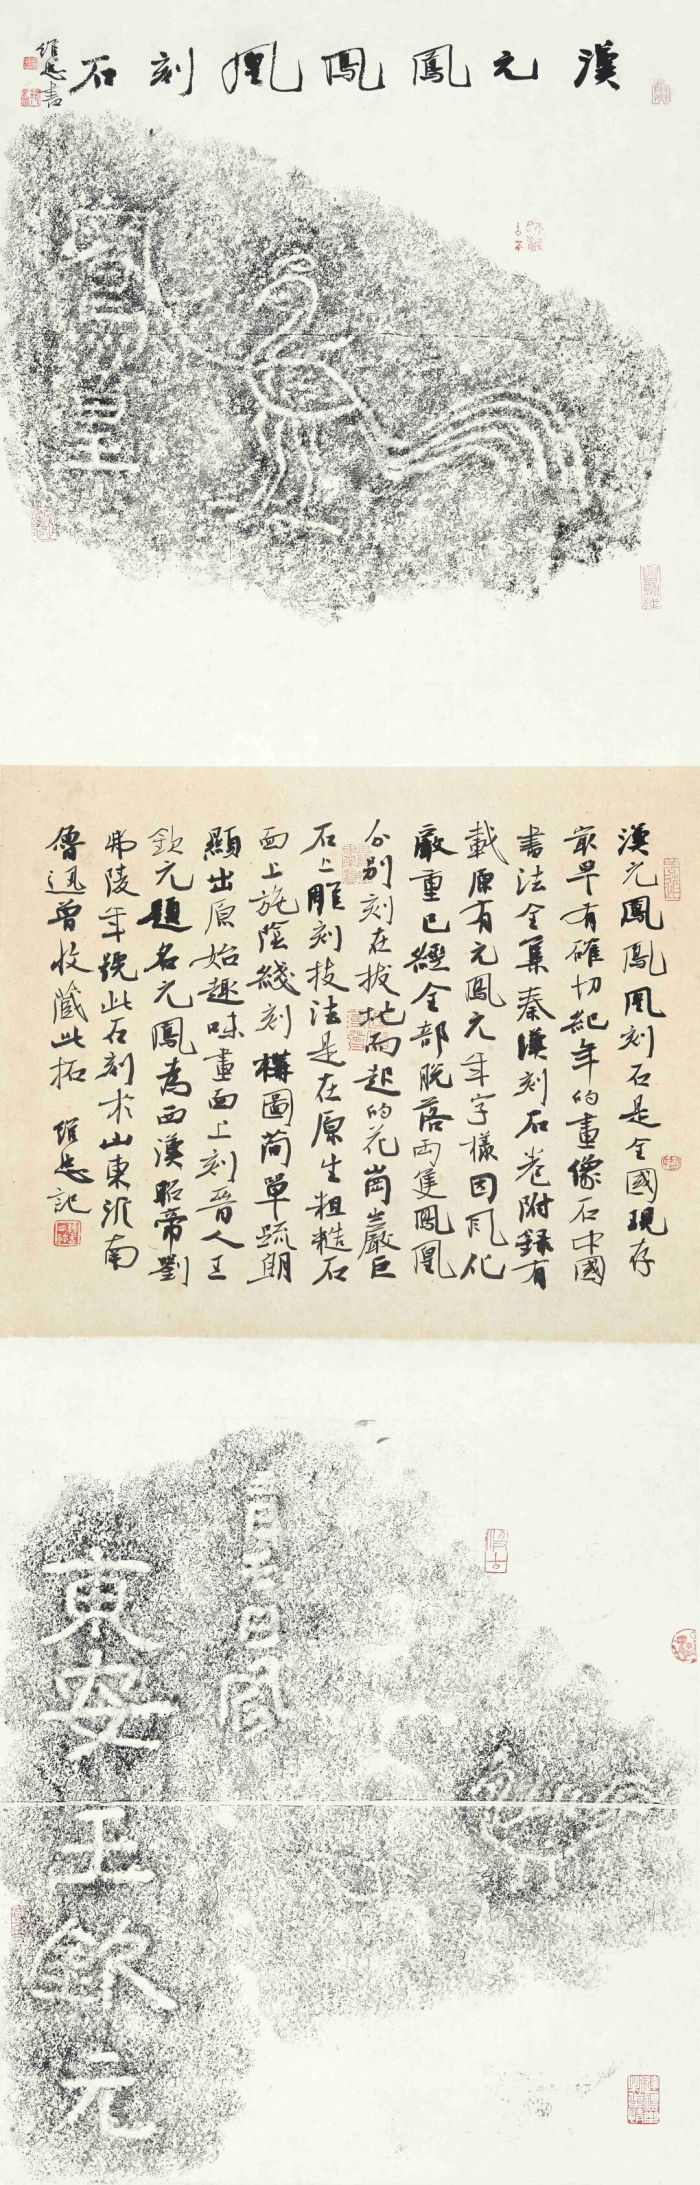 漢元鳳鳳凰刻石
維忠書
鳳皇
漢元鳳鳳凰刻石是全國現存
最早有確切紀年的畫像石中國
書法全集秦漢刻石卷附録有
載原有元鳳元年字樣因風化
嚴重已經全部脱落兩隻鳳凰
分别刻在拔地而起的花崗巖巨
石上雕刻技法是在原生粗糙石
面上施陰綫刻構圖簡單疏朗
顯出原始趣味畫面上刻晉人王
欽元題名元鳳為西漢昭帝劉
弗陵年號此石刻於山東沂南
魯迅曾收藏此拓 維忠記
三月七日鳳
東安王欽元